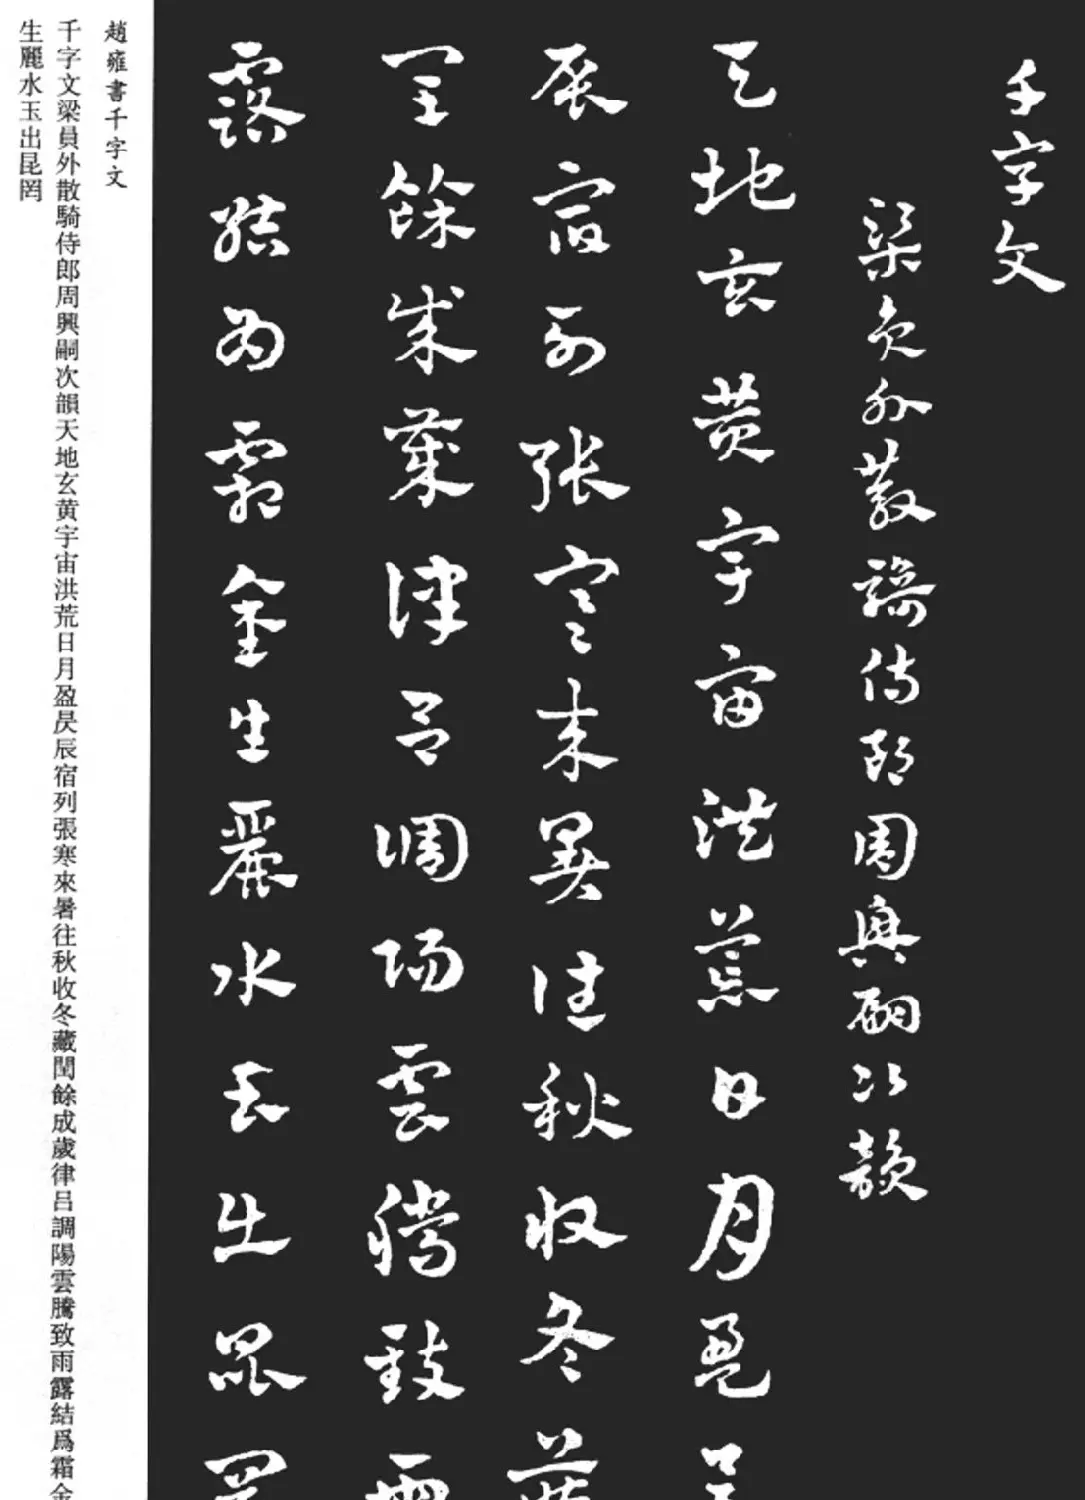 千字文
梁員外散騎侍郎周興嗣次韻
天地玄黄宇宙洪荒日月盈昃
辰宿列張寒来暑往秋收冬藏
閏餘成歲律吕調陽雲騰致雨
露結為霜金生麗水玉出昆岡
趙雍書千字文
千字文梁員外散騎侍郎周興嗣次韻天地玄黄宇宙洪荒日月盈昃辰宿列張寒來暑往秋收冬藏閏餘成歲律吕調陽雲騰致雨露結爲霜金
生麗水玉出昆罔